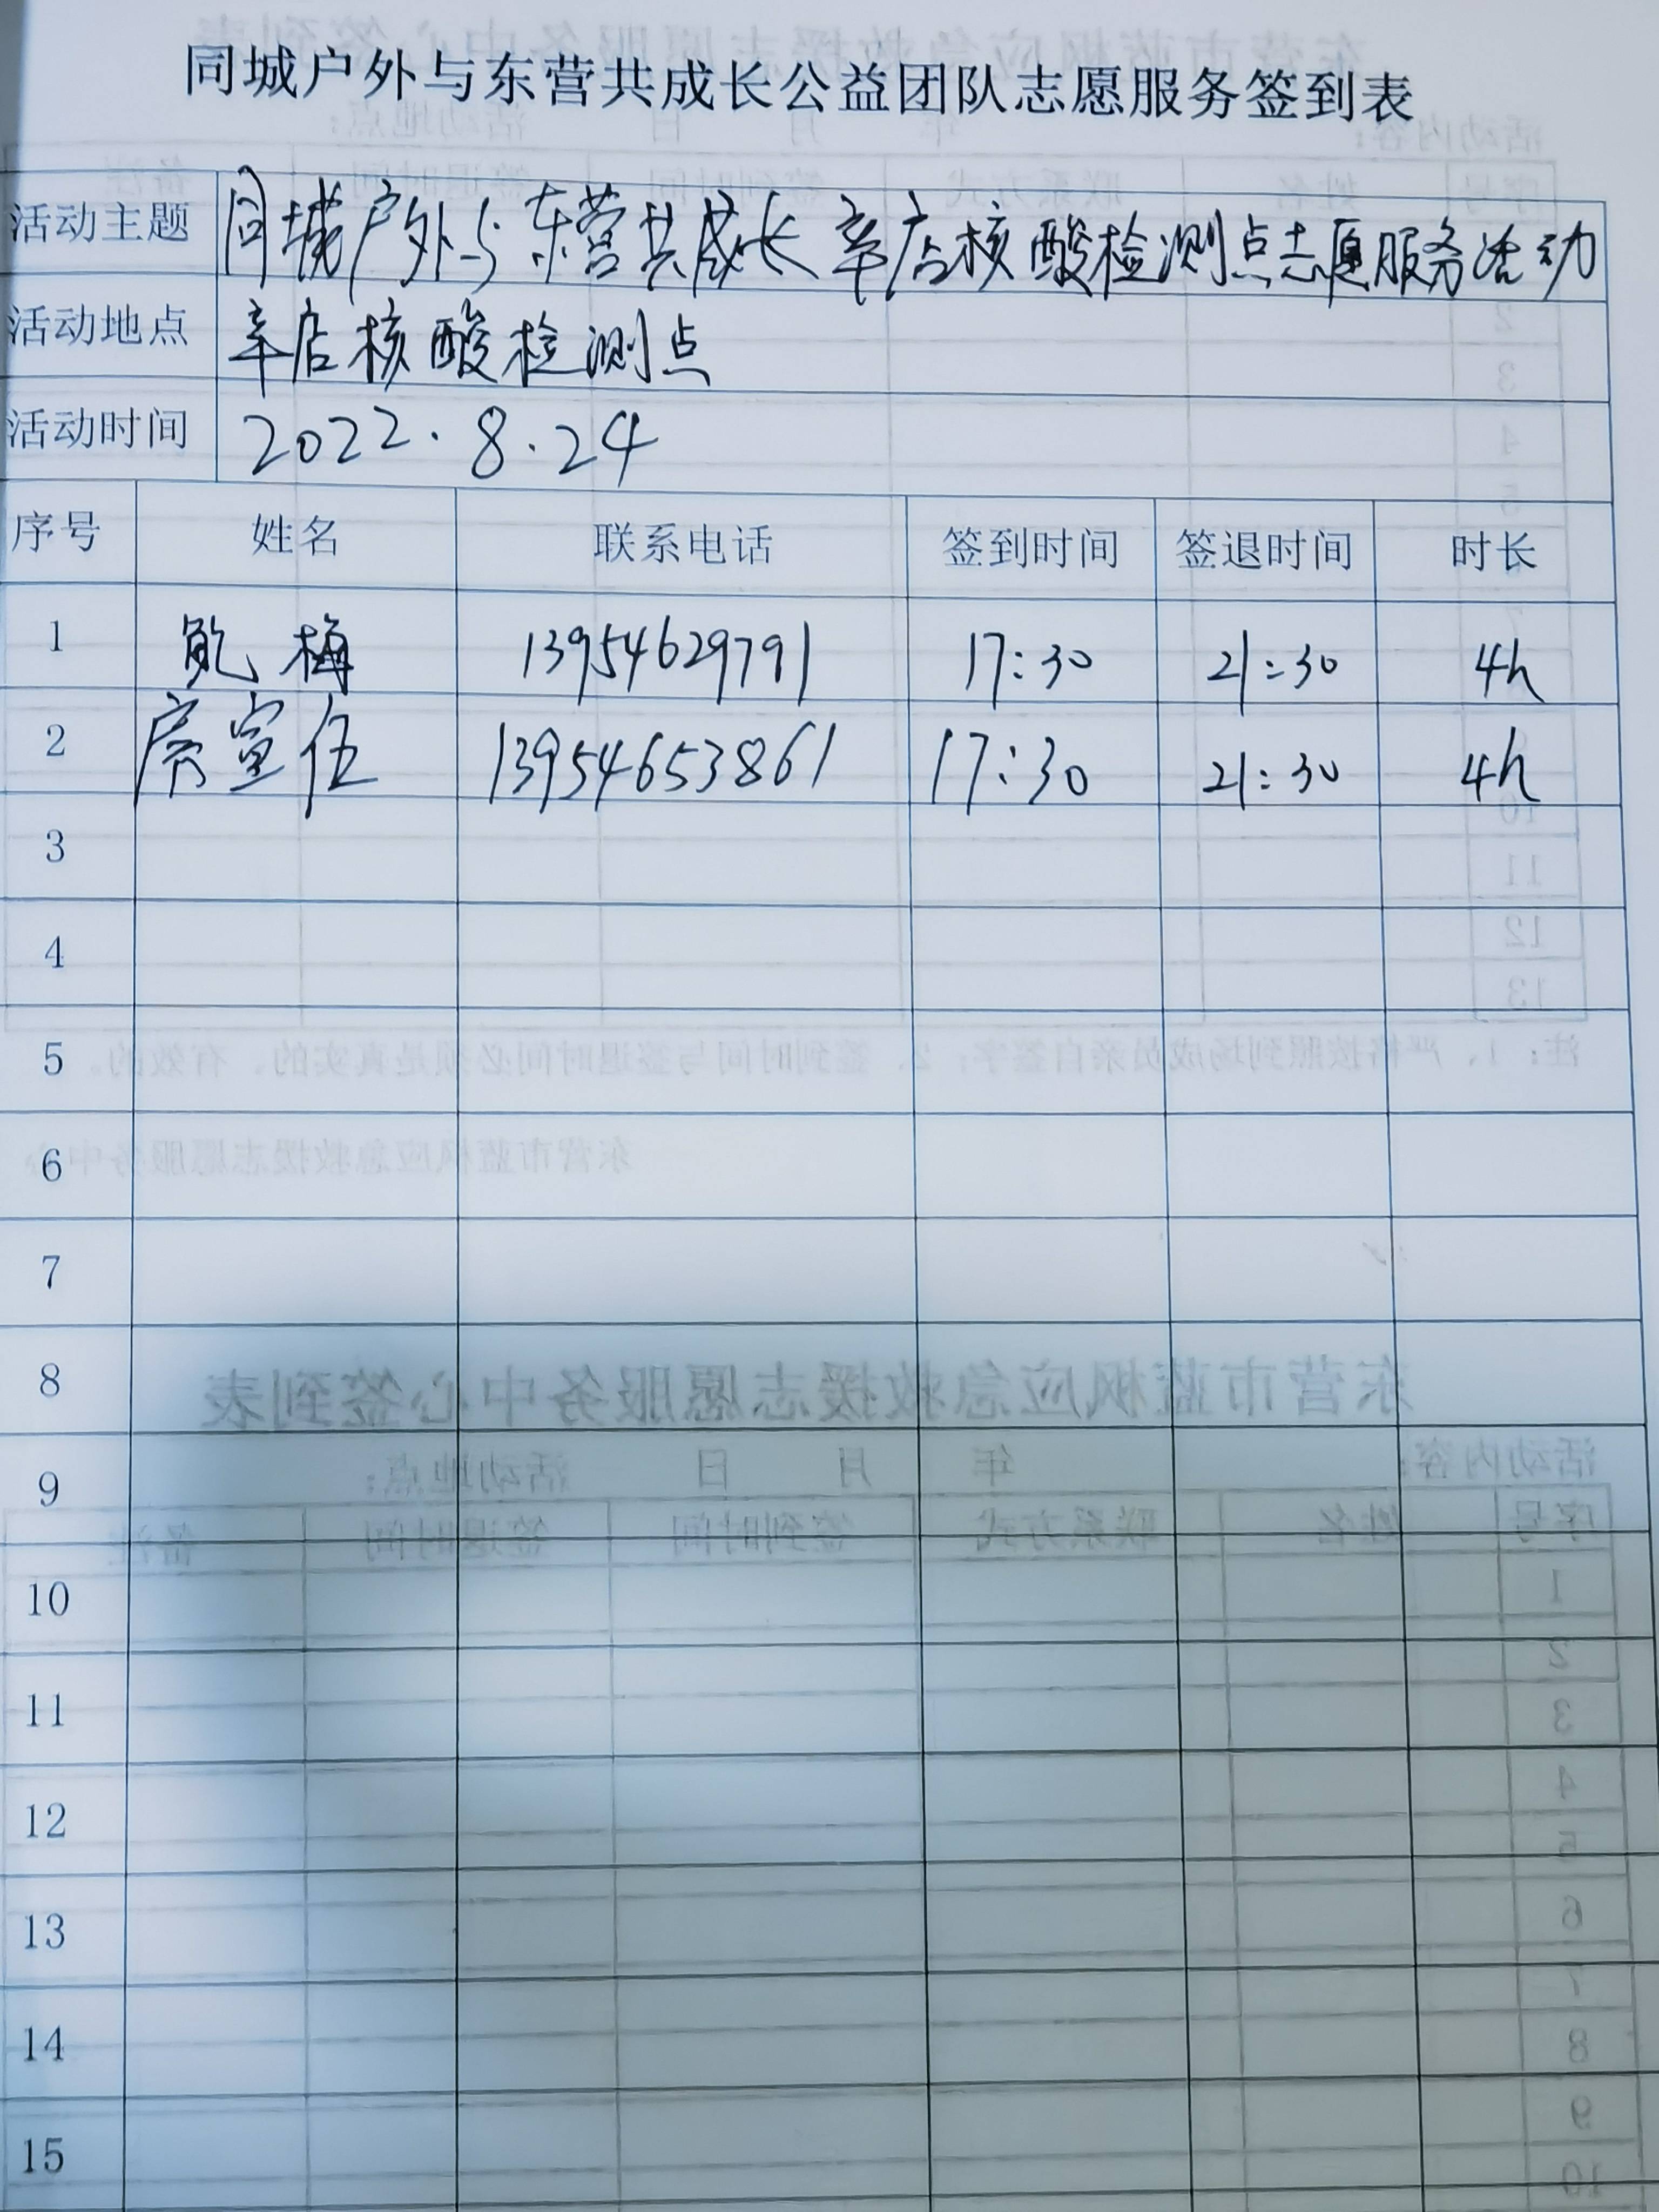 同城户外与东营共成长公益团队志愿服务签到表
活动主题 同城户外与东营共成长辛店核酸检测点志愿服务活动
活动地点 辛店核酸检测点
活动时间 2022.8.24
序号 姓名 联系电话 签到时间 签退时间 时长
1 鲍梅 13954629791 17:30 21:30 4h
2 房宣伍 13954653861 17:30 21:30 4h
3
4
5
6
7
8
9
10
11
12
13
14
15